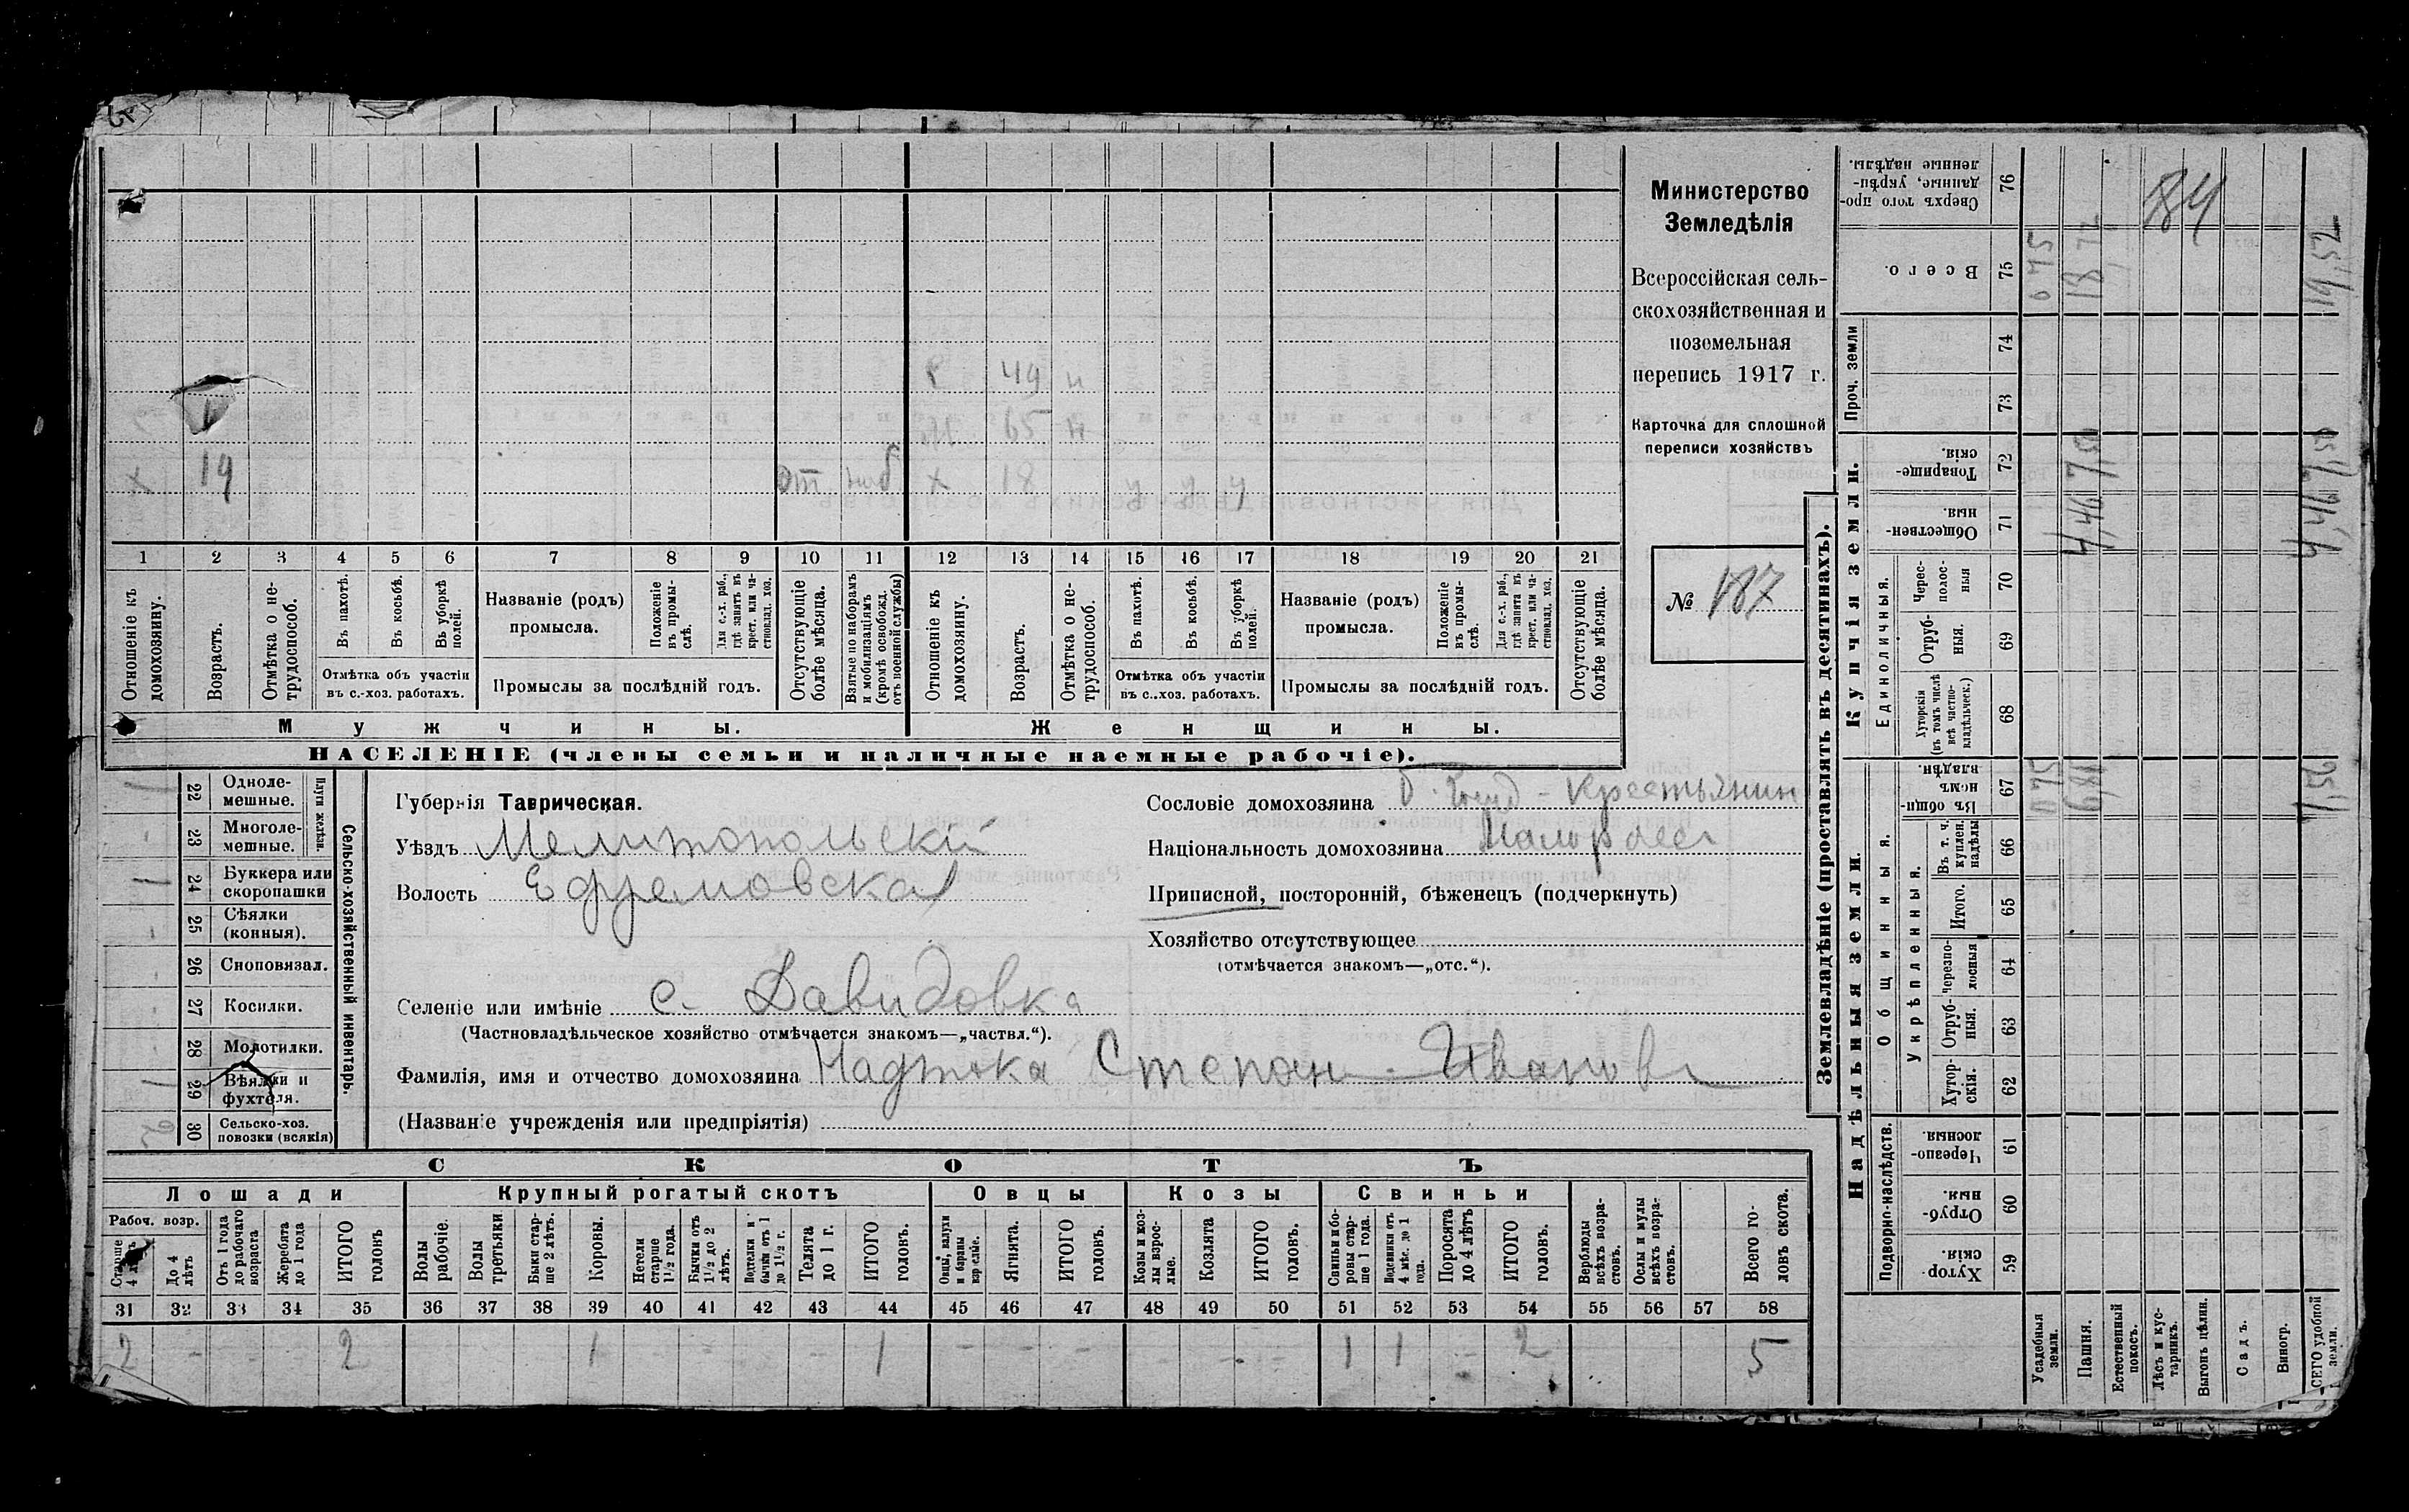 49 н
65 н
х 14 от наб х 18 у у у
1 2 3 4 5 6 7 8 9 10 11 12 13 14 15 16 17 18 19 20 21
Отношеніе къ домохозяину.
Возрастъ.
Отмѣтка о не-
трудоспособ.
Въ пахотѣ.
Въ косьбѣ.
Въ уборкѣ полей.
Отмѣтка объ участіи
въ с.-хоз. работахъ.
Названіе (родъ)
промысла.
Положеніе въ промы-
слѣ.
Для с.-х. раб., гдѣ занятъ въ крест. или ча-
стновлад. хоз.
Промыслы за послѣдній годъ.
Отсутствующіе болѣе мѣсяца.
Взятые по наборамъ и мобилизаціямъ (кромѣ освобожд. отъ военной службы)
Отношеніе къ домохозяину.
Возрастъ.
Отмѣтка о не-
трудоспособ.
Въ пахотѣ.
Въ косьбѣ.
Въ уборкѣ полей.
Отмѣтка объ участіи
въ с.-хоз. работахъ.
Названіе (родъ)
промысла.
Положеніе въ промы-
слѣ.
Для с.-х. раб., гдѣ занята въ крест. или ча-
стновлад. хоз.
Промыслы за послѣдній годъ.
Отсутствующіе болѣе мѣсяца.
Мужчины. Женщины.
НАСЕЛЕНІЕ (члены семьи и наличные наемные рабочіе).
Министерство
Земледѣлія
Всероссійская сель-
скохозяйственная и
поземельная
перепись 1917 г.
Карточка для сплошной
переписи хозяйствъ
№ 187
Сельско-хозяйственный инвентарь.
Плуги желѣзн.
22 Одноле-
мешные. 1
23 Многоле-
мешные. -
24 Буккера или
скоропашки 1
25 Сѣялки
(конныя). -
26 Сноповязал. -
27 Косилки. -
28 Молотилки. -
29 Вѣялки и
фухтеля. 1
30 Сельско-хоз.
повозки (всякія) 2
Губернія Таврическая.
Уѣздъ Мелитопольскій
Волость Ефремовская
Селеніе или имѣніе с. Давидовка
(Частновладѣльческое хозяйство отмѣчается знакомъ—„частвл.“).
Фамилія, имя и отчество домохозяина Надточа Степан Иванов
(Названіе учрежденія или предпріятія)
Сословіе домохозяина Крестьянин
Національность домохозяина Малоросс
Приписной, посторонній, бѣженецъ (подчеркнуть)
Хозяйство отсутствующее
(отмѣчается знакомъ—„отс.“).
СКОТЪ
Лошади Крупный рогатый скотъ Овцы Козы Свиньи
Рабоч. возр.
Старше 4 лѣтъ
До 4 лѣтъ
Отъ 1 года до рабочаго возраста
Жеребята до 1 года
ИТОГО головъ
Волы рабочіе.
Волы третьяки
Быки стар-
ше 2 лѣтъ.
Коровы.
Нетели старше 1 1/2 года.
Бычки отъ 1 1/2 до 2 лѣтъ.
Подтелки и бычки отъ 1 до 1 1/2 г.
Телята до 1 г.
ИТОГО головъ.
Овцы, валухи и бараны взрослые.
Ягнята.
ИТОГО головъ.
Козы и коз-
лы взрос-
лые.
Козлята
ИТОГО головъ.
Свиньи и бо-
ровы стар-
ше 1 года.
Подсвинки отъ 4 мѣс. до 1 года.
Поросята до 4 лѣтъ
ИТОГО головъ.
Верблюды всѣхъ возра-
стовъ.
Ослы и мулы всѣхъ возра-
стовъ.
Всего го-
ловъ скота.
31 32 33 34 35 36 37 38 39 40 41 42 43 44 45 46 47 48 49 50 51 52 53 54 55 56 57 58
2 - - - 2 1 - - - 1 - - - - - - 1 1 - 2 5
Землевладѣніе (проставлять въ десятинахъ).
Надѣльныя земли. Купчія земли.
Проч. земли
Подворно-наслѣдств.
Общинныя.
Укрѣпленныя.
Единоличныя.
Сверхъ того про-
данные, укрѣп-
ленные надѣлы. 76
Всего. 75
74
73
Товарище-
скія. 72
Обществен-
ныя. 71
Черес-
полос-
ныя 70
Отруб-
ныя. 69
Хуторскія
(въ томъ числѣ
всѣ частно-
владѣльческ.) 68
Въ общи-
номъ
владѣн. 67
Въ т. ч.
куплен.
надѣлы 66
Итого. 65
Черезпо-
лосныя 64
Отруб-
ныя. 63
Хутор-
скія. 62
Черезпо-
лосныя. 61
Отруб-
ныя. 60
Хутор-
скія. 59
Усадебныя земли. 075 075
Пашня. 681 4,46 7/50 18,72
Естественный покосъ.
Лѣсъ и кус-
тарникъ. 84
Выгонъ цѣлин.
Садъ.
Виногр.
ВСЕГО удобной земли. 4,46 7/50 19,52